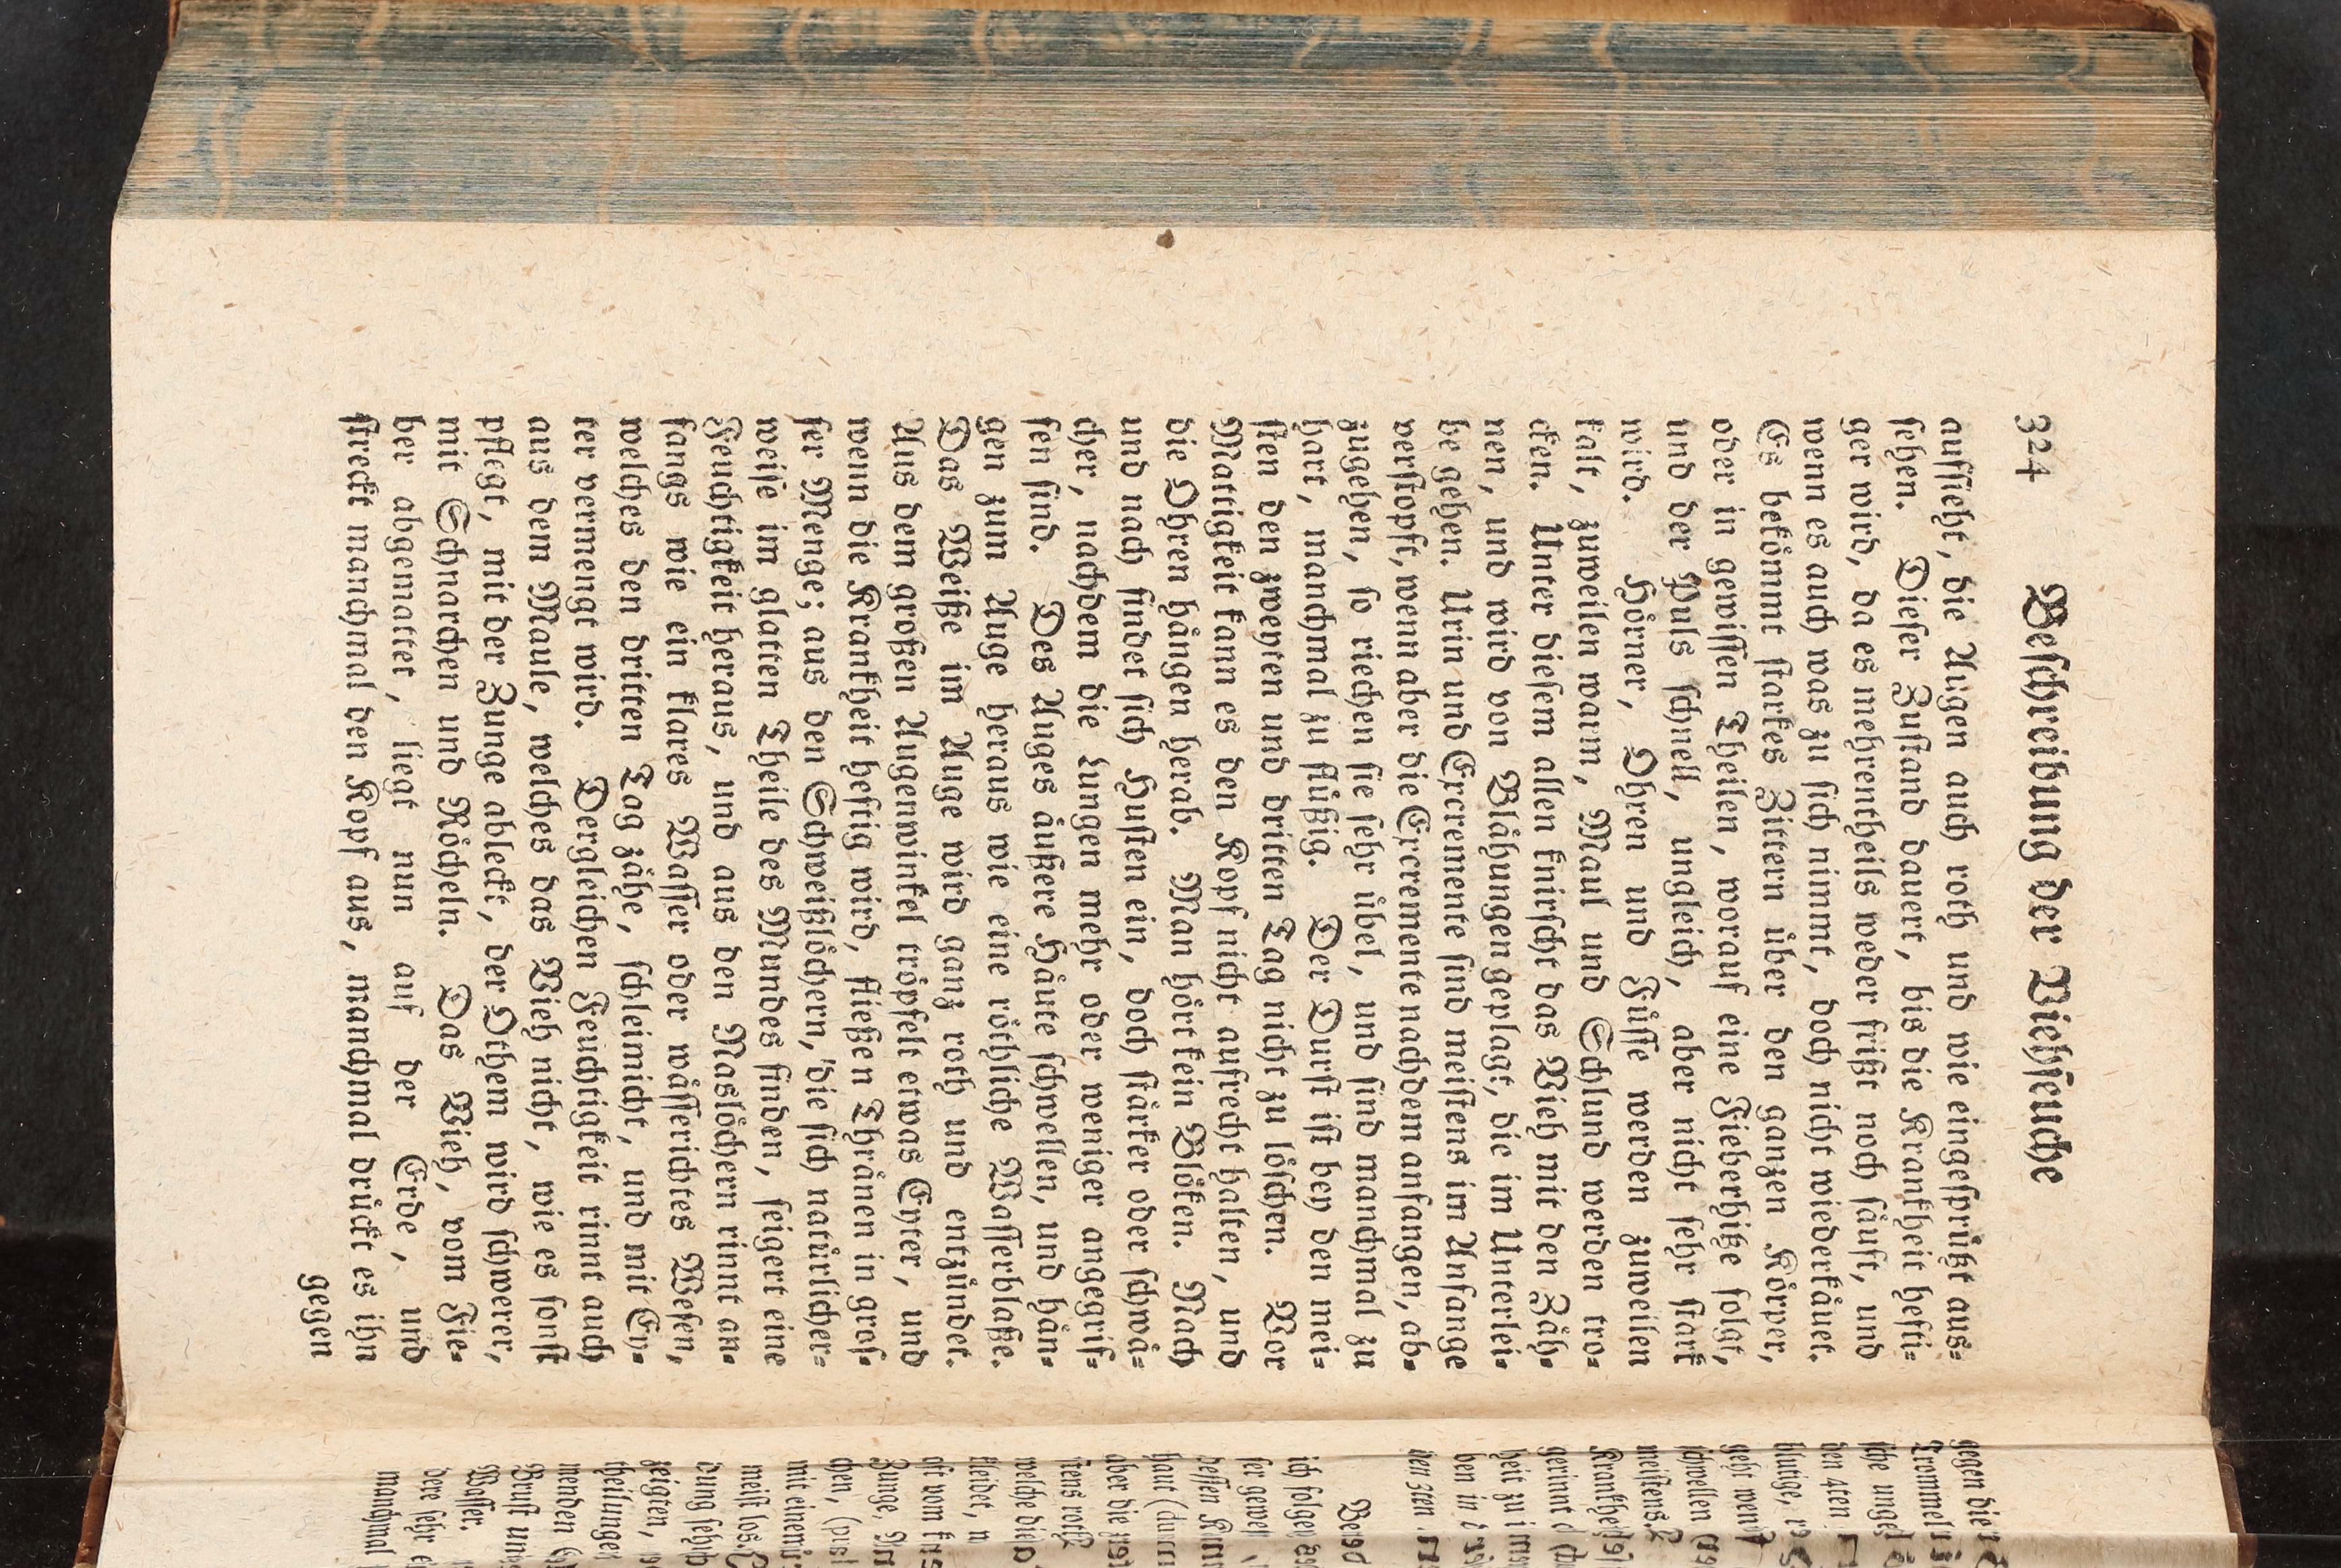 324 Beschreibung der Viehseuche
aussieht, die Augen auch roth und wie eingesprüßt aus-
sehen. Dieser Zustand dauert, bis die Krankheit hefti-
ger wird, da es mehrentheils weder frißt noch säuft, und
wenn es auch was zu sich nimmt, doch nicht wiederkäuet.
Es bekömmt starkes Zittern über den ganzen Körper,
oder in gewissen Theilen, worauf eine Fieberhiße folgt,
und der Puls schnell, ungleich, aber nicht sehr stark
wird. Hörner, Ohren und Füsse werden zuweilen
kalt, zuweilen warm, Maul und Schlund werden tro-
cken. Unter diesem allen knirscht das Vieh mit den Zäh-
nen, und wird von Blähungen geplagt, die im Unterlei-
be gehen. Urin und Excremente sind meistens im Anfange
verstopft, wenn aber die Excremente nachdem anfangen, ab-
zugehen, so riechen sie sehr übel, und sind manchmal zu
hart, manchmal zu flüßig. Der Durst ist bey den mei-
sten den zweyten und dritten Tag nicht zu löschen. Vor
Mattigkeit kann es den Kopf nicht aufrecht halten, und
die Ohren hängen herab. Man hört kein Blöken. Nach
und nach findet sich Husten ein, doch stärker oder schwä-
cher, nachdem die Lungen mehr oder weniger angegrif-
fen sind. Des Auges äußere Häute schwellen, und hän-
gen zum Auge heraus wie eine röthliche Wasserblaße.
Das Weiße im Auge wird ganz roth und entzündet.
Aus dem großen Augenwinkel tröpfelt etwas Eyter, und
wenn die Krankheit heftig wird, fließen Thränen in gros-
ser Menge; aus den Schweißlöchern, die sich natürlicher-
weise im glatten Theile des Mundes finden, seigert eine
Feuchtigkeit heraus, und aus den Naslöchern rinnt an-
fangs wie ein klares Wasser oder wässerichtes Wesen,
welches den dritten Tag zähe, schleimicht, und mit Ey-
ter vermengt wird. Dergleichen Feuchtigkeit rinnt auch
aus dem Maule, welches das Vieh nicht, wie es sonst
pflegt, mit der Zunge ableckt, der Othem wird schwerer,
mit Schnarchen und Röcheln. Das Vieh, vom Fie-
ber abgemattet, liegt nun auf der Erde, und
streckt manchmal den Kopf aus, manchmal drückt es ihn
gegen
gegen die
Trommel
sche
den 4ten
blutige,
geht
meistens
schwellen
Krankhei
gerinnt
heit zu
ben in
den 3ten
ich folge
ser
dessen
haut
aber die
stens roth
welche die
kleidet,
oft vom
Zunge,
chen,
mit einem
meist los.
dung
zeigten,
theilunge
menden
Brust
Wasser.
dere sehr
manchmal